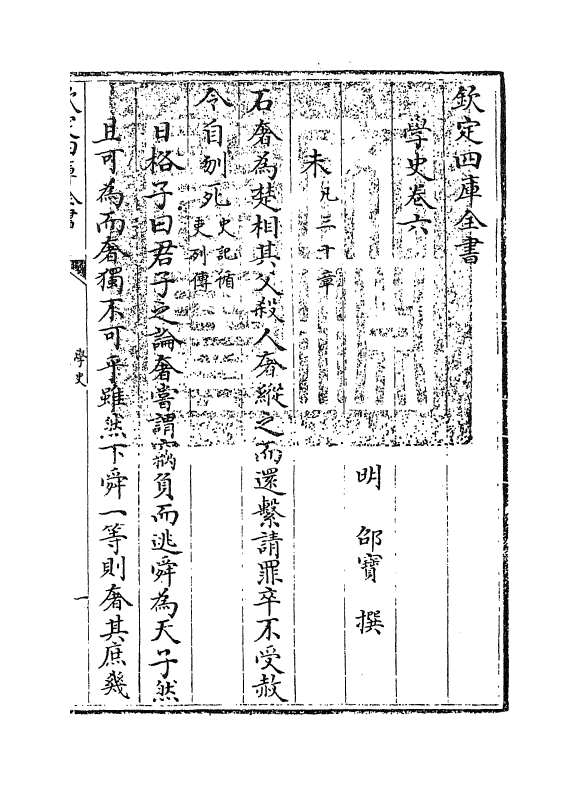 欽定四庫全書
學史卷六
明 邵寶 撰
未凡三十章
石奢為楚相其父殺人奢縱之而還繫請罪卒不受赦
令自刎死史記循吏列傳
日格子曰君子之論奢嘗謂竊負而逃舜為天子然
且可為而奢獨不可乎雖然下舜一等則奢其庶幾
欽定四庫全書
學史
一